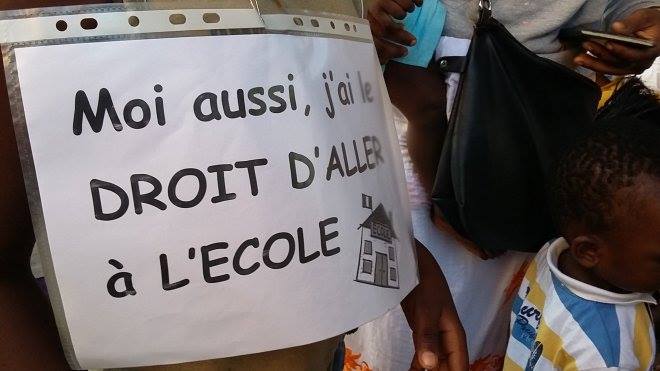 Moi aussi, j'ai le
DROIT D'ALLER
à L'ECOLE
ECOLE